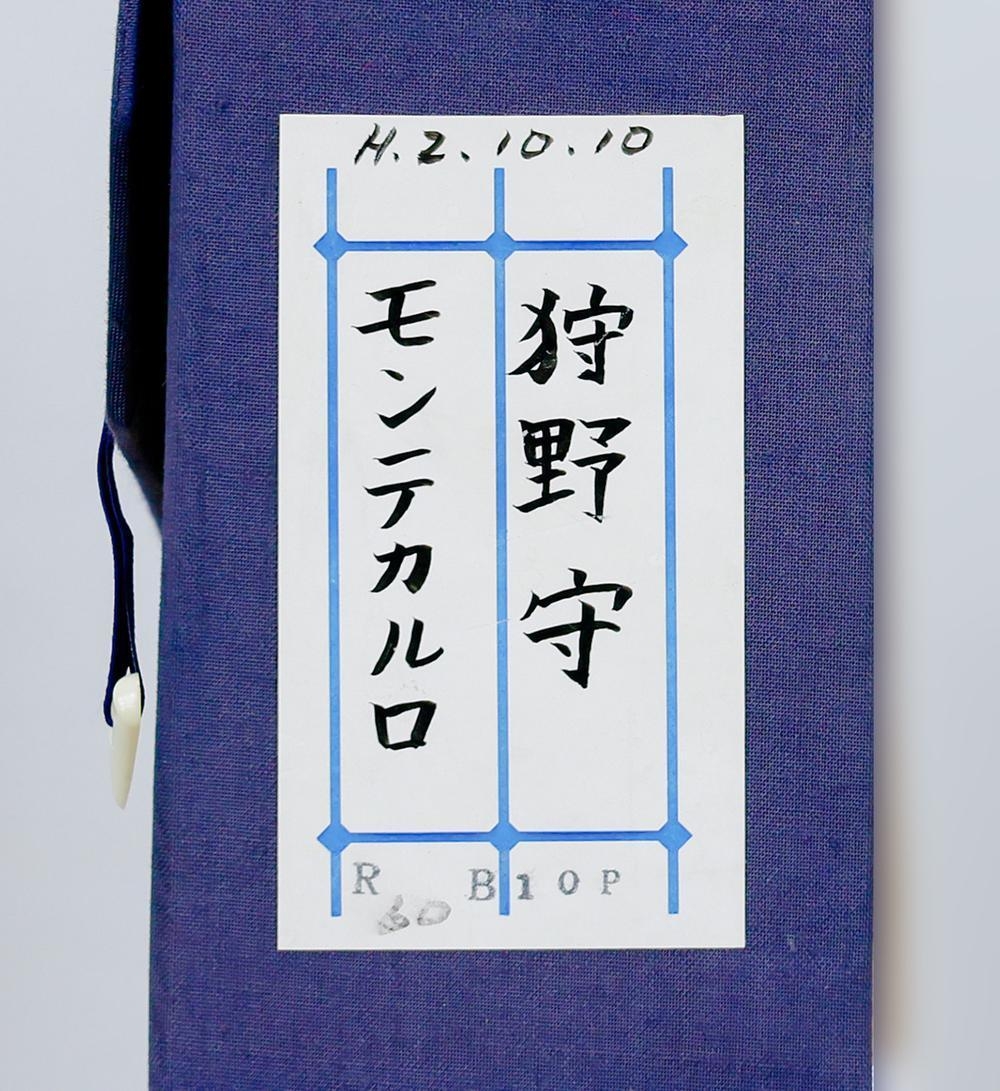 H.2.10.10
狩野守
モンテカルロ
R B10P
60